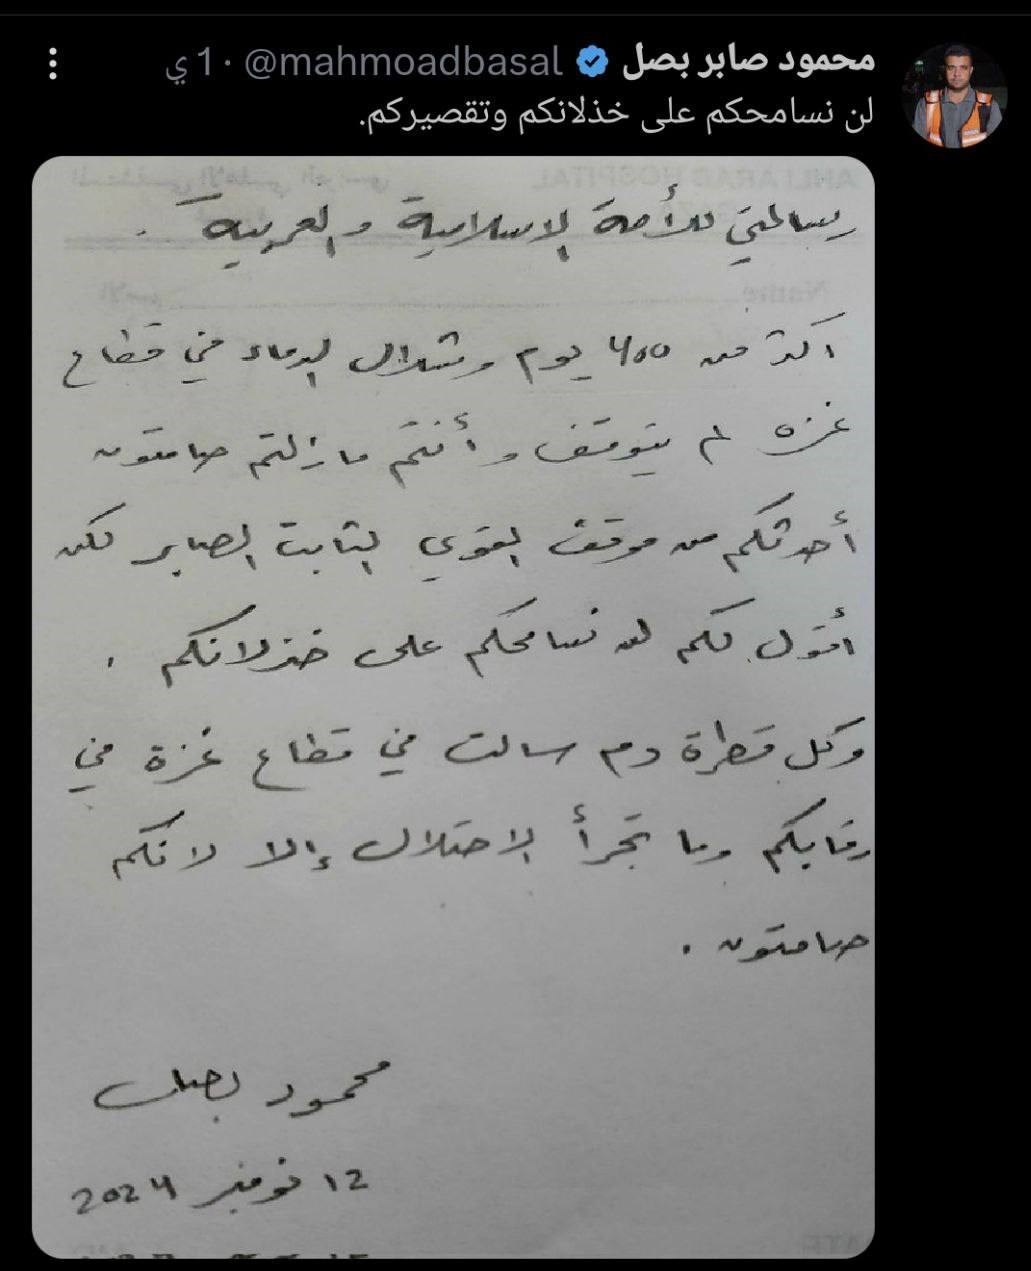 محمود صابر بصل @mahmoadbasal · 1 ي
لن نسامحكم على خذلانكم وتقصيركم.
AHLI ARAB HOSPITAL
Name
رسالتي للأمة الإسلامية والعربية.
أكثر من 400 يوم وشلال الدماء في قطاع
غزة لم يتوقف وأنتم ما زلتم صامتون
أحدثكم من موقف القوي الثابت الصابر لكن
أقول لكم لن نسامحكم على خذلانكم.
وكل قطرة دم سالت في قطاع غزة في
رقابكم وما تجرأ الاحتلال إلا لانكم
صامتون.
محمود بصل
12 نوفمبر 2024